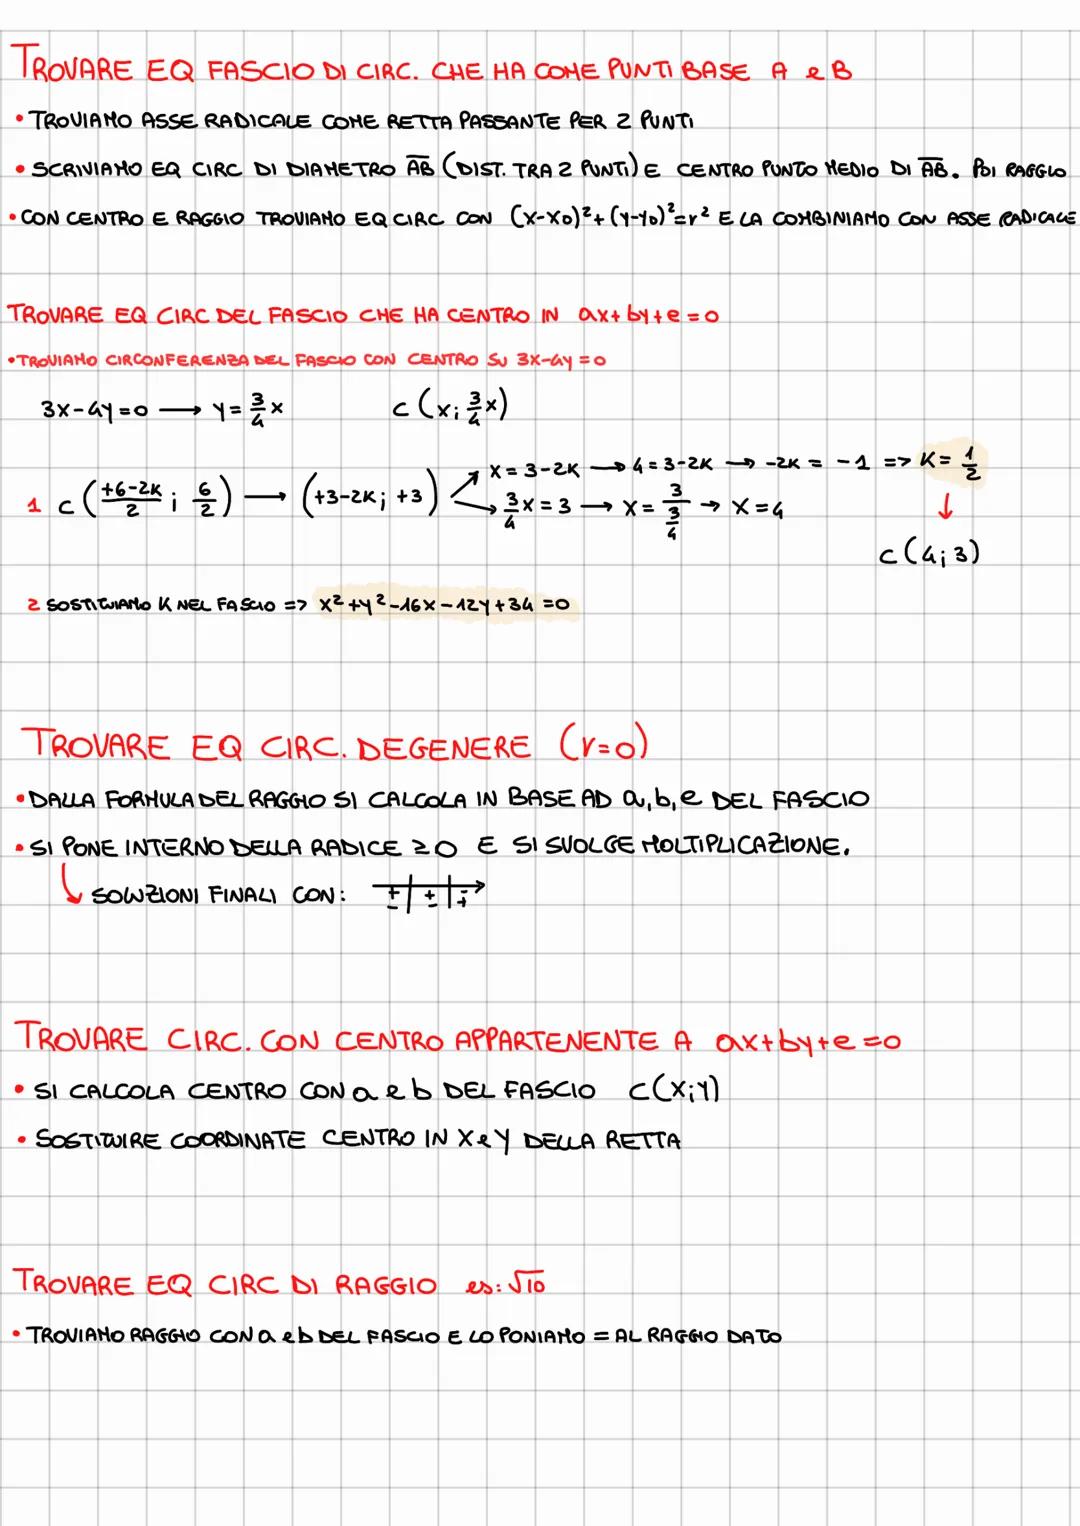 TROVARE EQ FASCIO DI CIRC. CHE HA COME PUNTI BASE A e B
• TROVIAMO ASSE RADICALE COME RETTA PASSANTE PER 2 PUNTI
• SCRIVIAMO EQ CIRC DI DIAMETRO A̅B̅ (DIST. TRA 2 PUNTI) E CENTRO PUNTO MEDIO DI A̅B̅. POI RAGGIO
• CON CENTRO E RAGGIO TROVIAMO EQ CIRC CON (X-X0)²+(Y-Y0)²=r² E LA COMBINIAMO CON ASSE RADICALE
TROVARE EQ CIRC DEL FASCIO CHE HA CENTRO IN ax+by+e=0
• TROVIAMO CIRCONFERENZA DEL FASCIO CON CENTRO SU 3X-4Y=0
3X-4Y=0 → Y=3/4 X C(X; 3/4 X)
1 C(+6-2K/2 ; 6/2) → (+3-2K; +3) ↗ X=3-2K → 4=3-2K → -2K = -1 => K=1/2
↘ 3/4 X=3 → X=3/(3/4) → X=4 ↓
C(4;3)
2 SOSTITUIAMO K NEL FASCIO => X²+Y²-16X-12Y+34=0
TROVARE EQ CIRC. DEGENERE (r=0)
• DALLA FORMULA DEL RAGGIO SI CALCOLA IN BASE AD a,b,e DEL FASCIO
• SI PONE INTERNO DELLA RADICE ≥0 E SI SVOLGE MOLTIPLICAZIONE.
↳ SOLUZIONI FINALI CON: ±|±|∓→
TROVARE CIRC. CON CENTRO APPARTENENTE A ax+by+e=0
• SI CALCOLA CENTRO CON a e b DEL FASCIO C(X;Y)
• SOSTITUIRE COORDINATE CENTRO IN X e Y DELLA RETTA
TROVARE EQ CIRC DI RAGGIO es: √10
• TROVIAMO RAGGIO CON a e b DEL FASCIO E LO PONIAMO = AL RAGGIO DATO